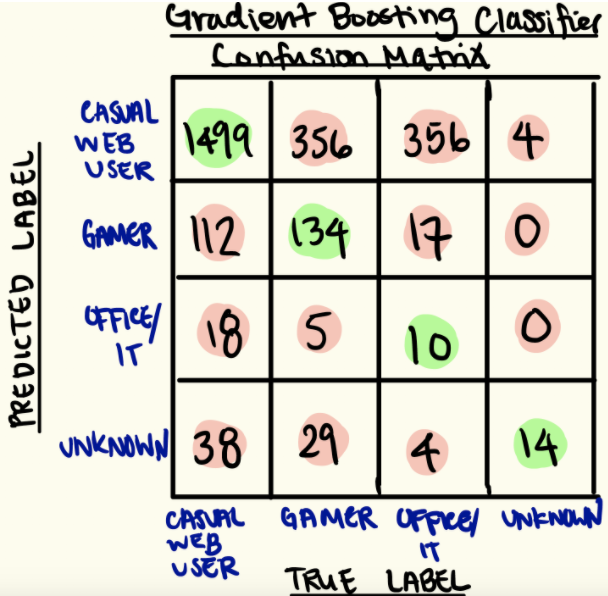 Gradient Boosting Classifier
Confusion Matrix
PREDICTED LABEL
CASUAL
WEB
USER
1499 356 356 4
GAMER
112 134 17 0
OFFICE/
IT
18 5 10 0
UNKNOWN
38 29 4 14
CASUAL
WEB
USER
GAMER
OFFICE/
IT
UNKNOWN
TRUE LABEL